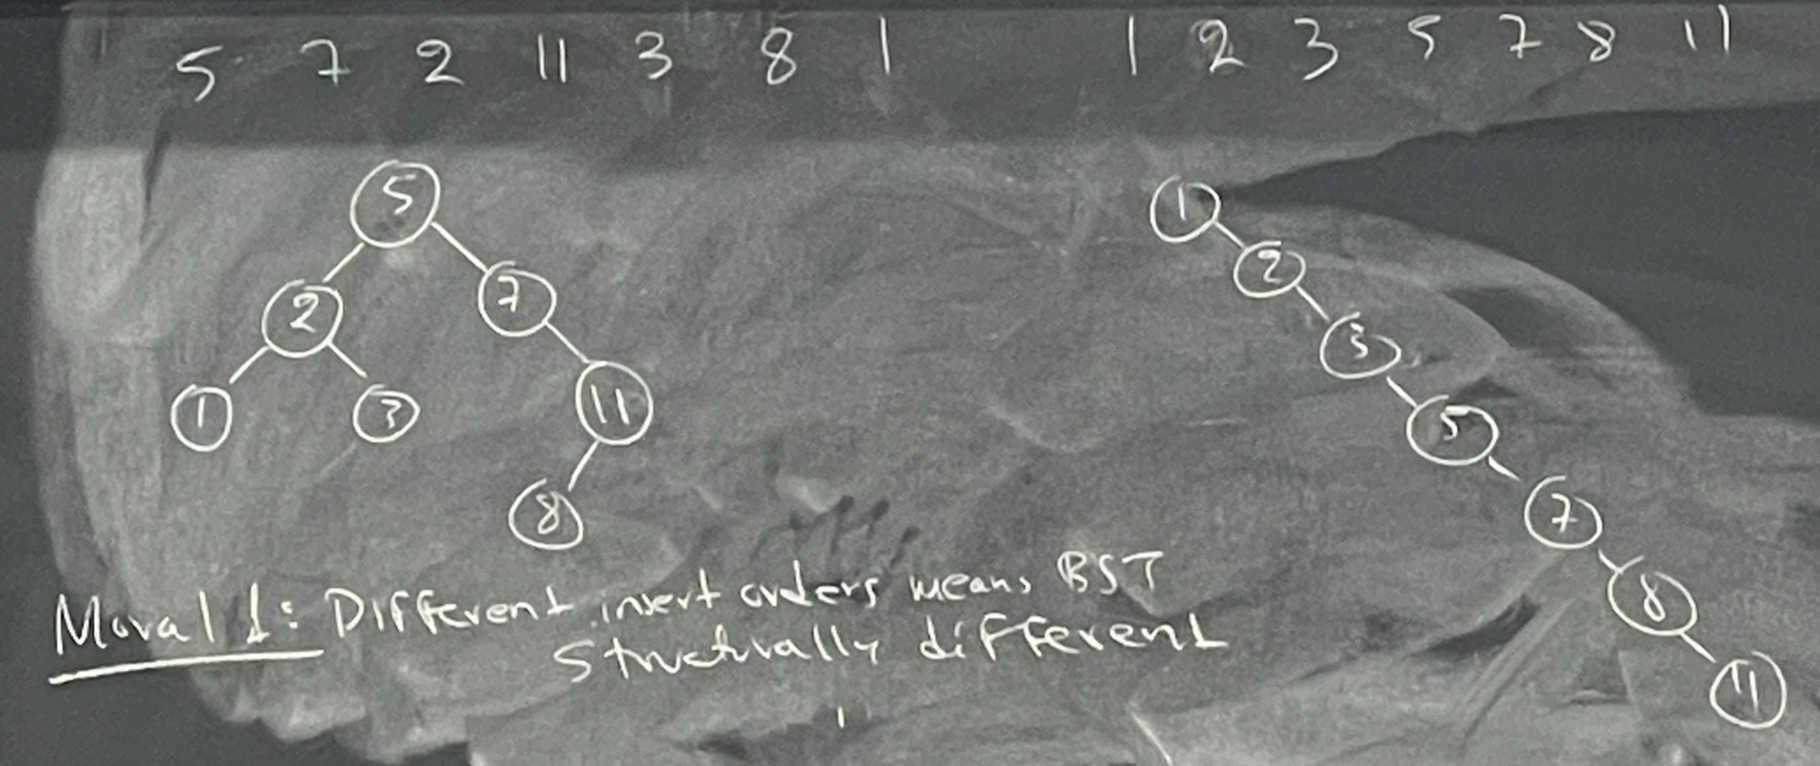 5 7 2 11 3 8 1
1 2 3 5 7 8 11
5
2 7
1 3 11
8
1
2
3
5
7
8
11
Moral 1: Different insert orders means BST
Structurally different